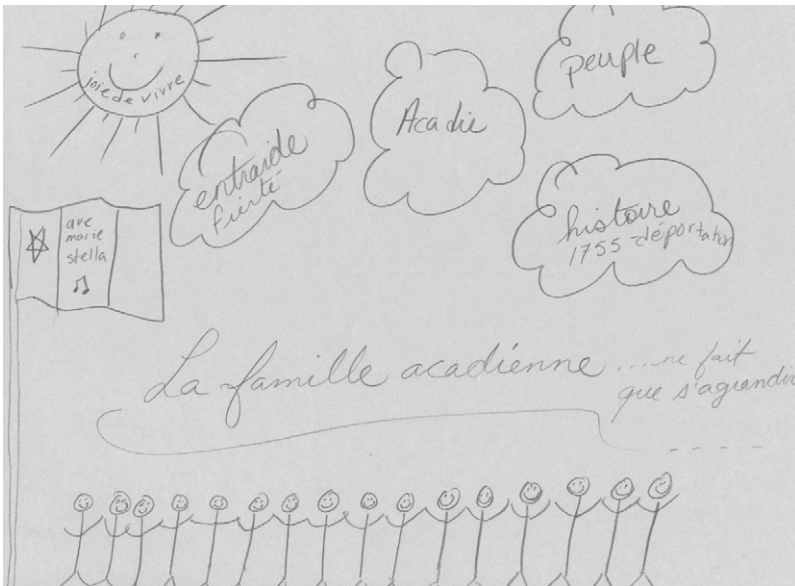 joie de vivre
entraide
fierté
Acadie
peuple
histoire
1755 - déportation
ave
marie
stella
La famille acadienne ....ne fait
que s'agrandir